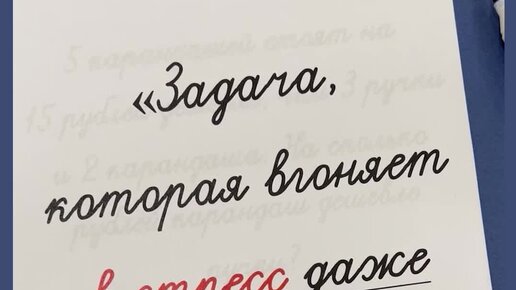 «Задача,
которая вгоняет
в стресс даже
5 карандашей стоят на
15 рублей 3 ручки
и 2 карандаша. На сколько
рублей карандаш дешевле
ручки?